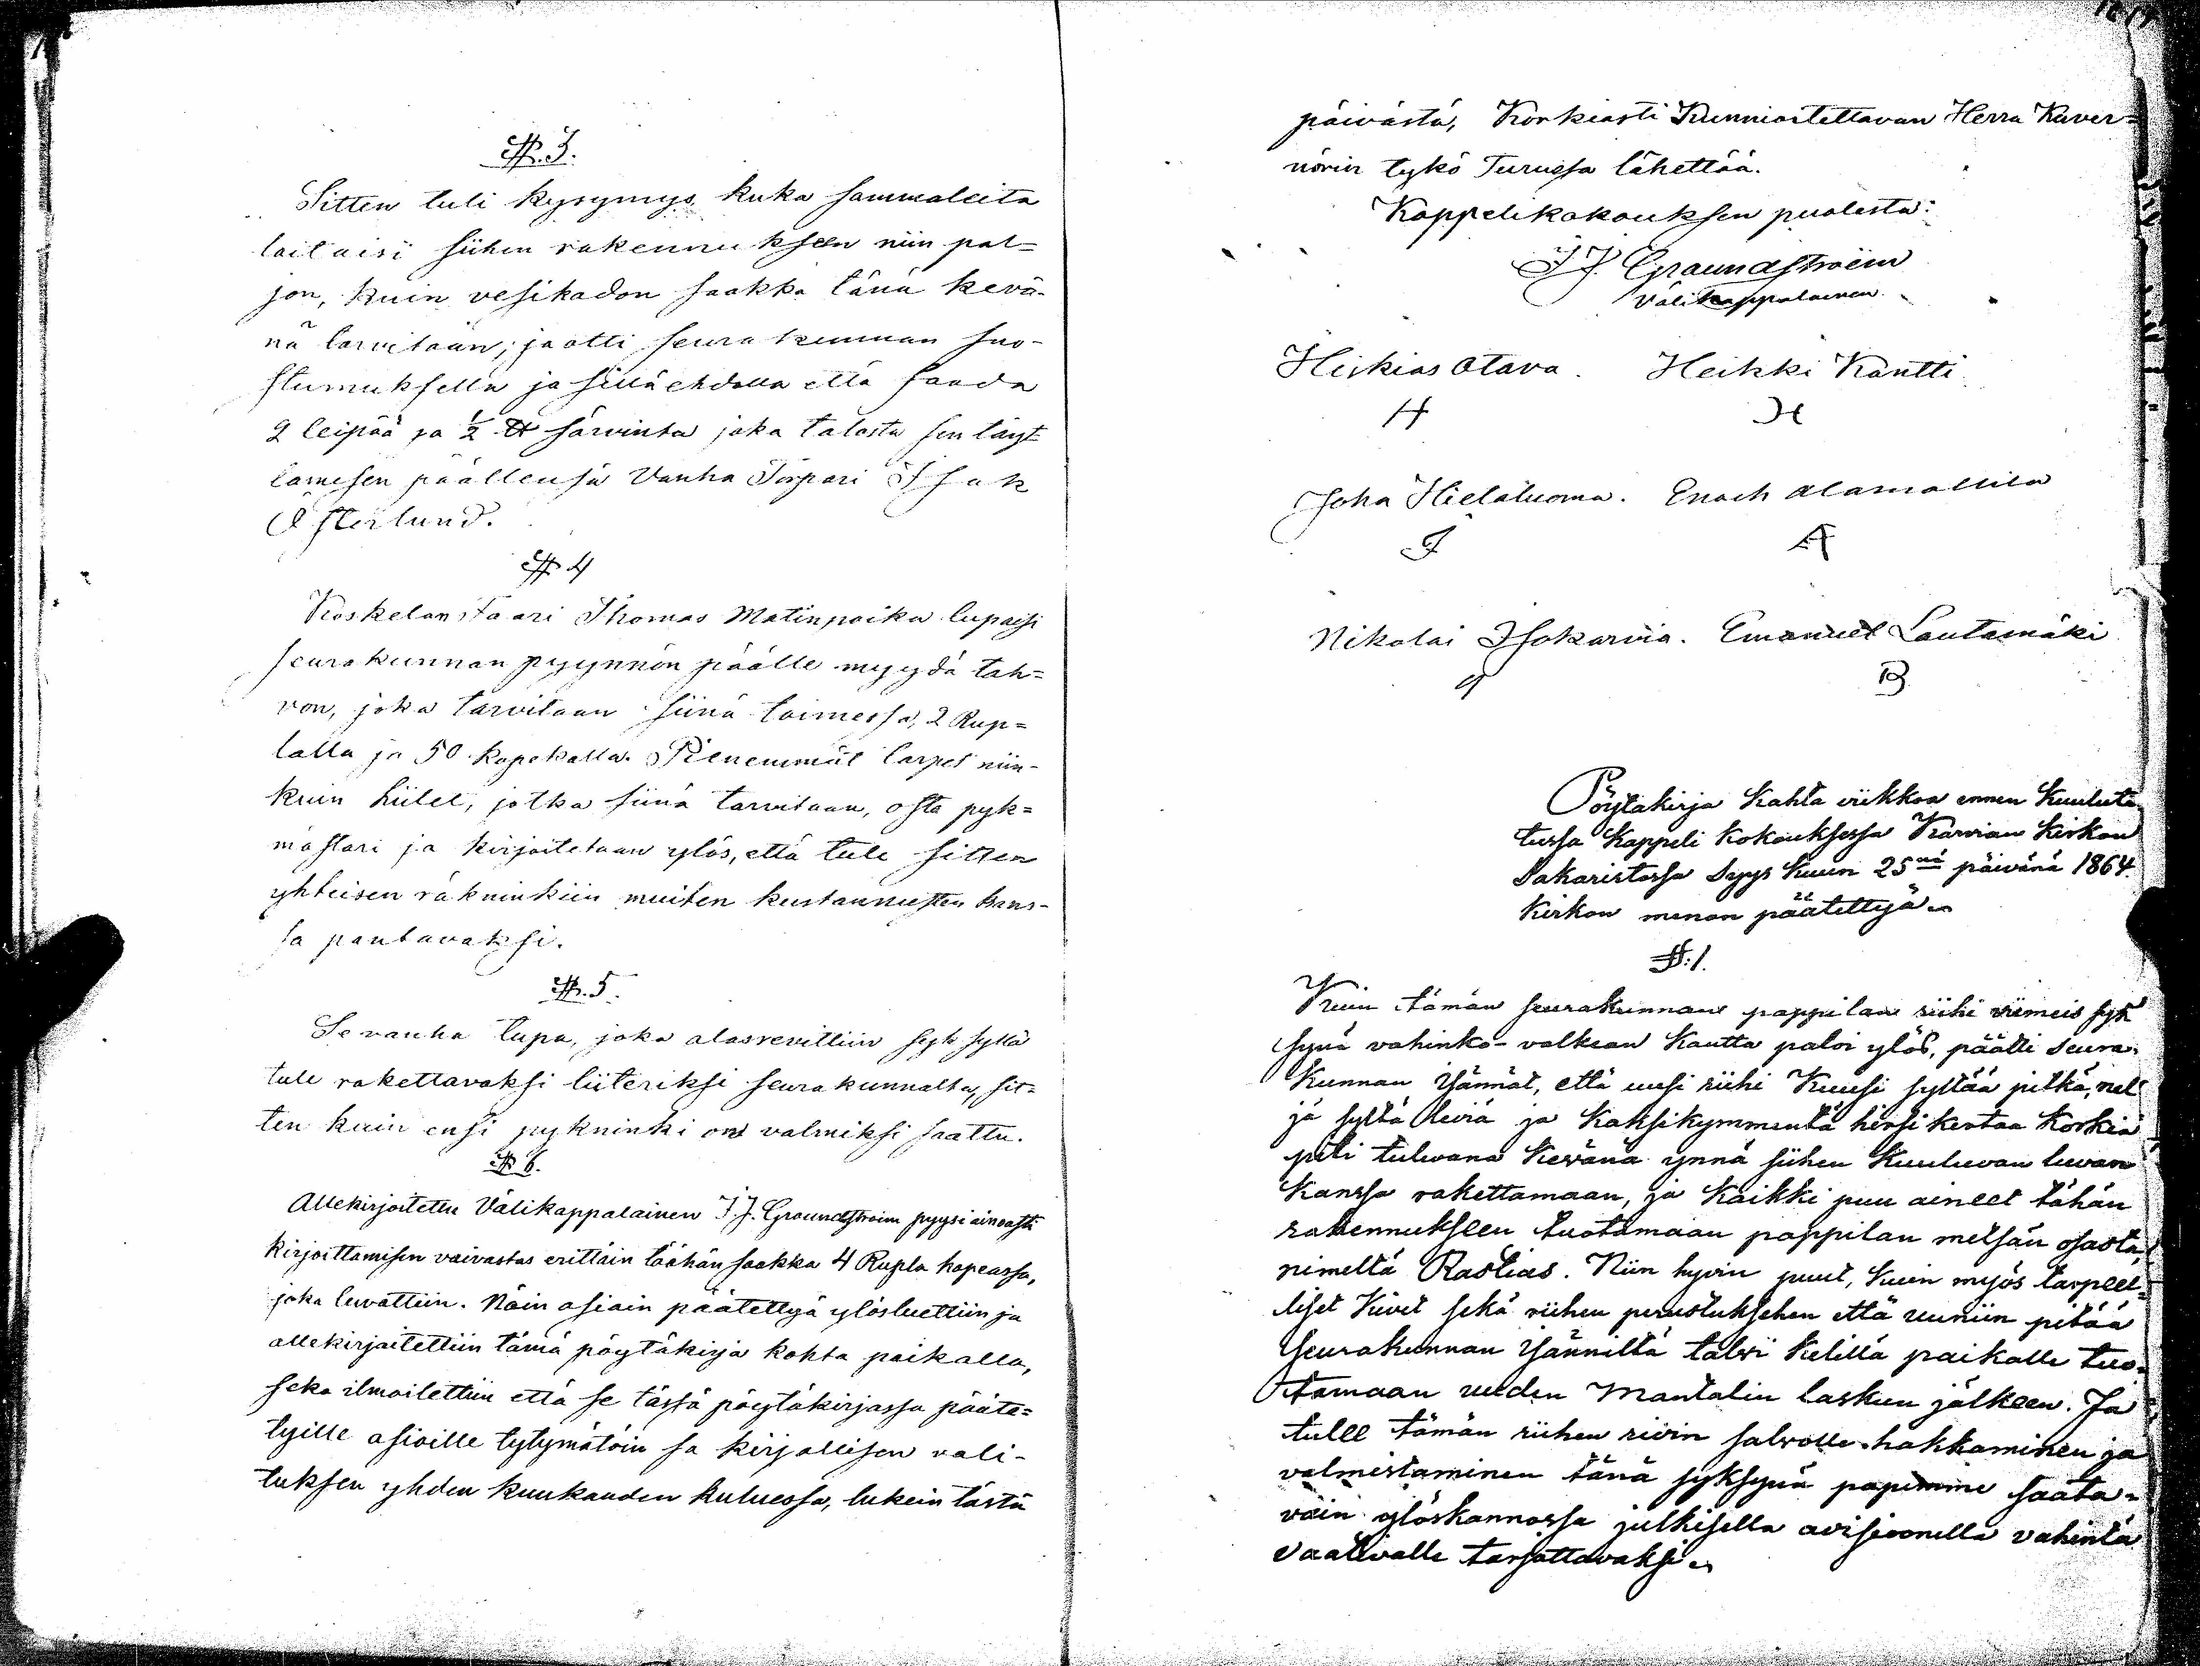 §. 3.
Sitten tuli kysymys kuka sammaleita
laitaisi siihen rakennukseen niin pal=
jon, kuin vesikadon saakka tänä kevä-
nä tarvitaan; ja otti seurakunnan suo-
stumuksella ja sillä ehdolla että saada
2 leipää ja ½ ℔ särvintä joka talosta sen täyt=
tämisen päällensä Vanha Torpari Isak
Österlund.
§ 4
Koskelan Faari Thomas Matinpoika lupaisi
seurakunnan pyynnön päälle myydä tah=
von, joka tarvitaan siinä toimessa, 2 Rup=
lalla ja 50 kopekalla. Pienemmät tarpet niin-
kuin hiilet, jotka siinä tarvitaan, osta pyk=
mästari ja kirjoitetaan ylös, että tule sitten
yhteisen räkninkiin muiten kustannusten kans-
sa pantavaksi.
§. 5.
Se vanha tupa, joka alasrevittiin syksyllä
tule rakettavaksi liiteriksi seurakunnalta, sit=
ten kuin ensi pykninki on valmiksi saattu.
§ 6.
Allekirjoitettu Välikappalainen J. J. Graundstroim pyysi ainoasti
kirjoittamisen vaivastas erittäin tähän saakka 4 Rupla hopeassa,
joka luvattiin. Näin asiain päätettyä ylösluettiin ja
allekirjoitettiin tämä pöytäkirja kohta paikalla,
sekä ilmoitettiin että se tässä pöytäkirjassa pääte=
tyille asioille tytymätöin sa kirjallisen vali-
tuksen yhden kuukauden kuluessa, lukein tästä
päivästä, Korkiasti Kunnioitettavan Herra Kuver=
nörin tykö Turussa lähettää.
Kappelikokouksen puolesta:
J J. Graundstroim
Välikappalainen.
Hiskias Otava. Heikki Kantti
H H
Joha Hietaluoma. Enoch Alamattila
J A
Nikolai Isokarvia. Emanuel Lautamäki
B
Pöytäkirja Kahta viikkoa ennen Kuuluta
tussa Kappeli Kokouksessa Karvian Kirkon
Sakaristossa Syys Kuun 25nä päivänä 1864.
Kirkon menon päätettyä.
§. 1.
Kuin tämän seurakunnan pappilan riihi viimeis syk
synä vahinko-valkian Kautta paloi ylös, päätti Seura-
Kunnan Yännät, että uusi riihi Kuusi syltää pitkä, nel
jä syltä leviä ja Kaksikymmentä hirsi kertaa Korkia
piti tulevana Kevänä ynnä siihen Kuuluvan luvan
Kanssa rakettamaan, ja Kaikki puu aineet tähän
rakennukseen tuotamaan pappilan metsän osasta,
nimeltä Rastias. Niin hyvin puut, kuin myös tarpeel=
liset Kivet sekä riihen perustuksehen että uuniin pitää
Seurakunnan Yänniltä talvi Kelillä paikalle tuo=
tamaan uuden Mantalin laskun jälkeen. Ja
tulee tämän riihen rivin salvolle hakkaminen ja
valmistaminen tänä syksynä saata=
vain ylöskannossa julkisella avisioonilla vahintä
vaativalle tarjottavaksi.